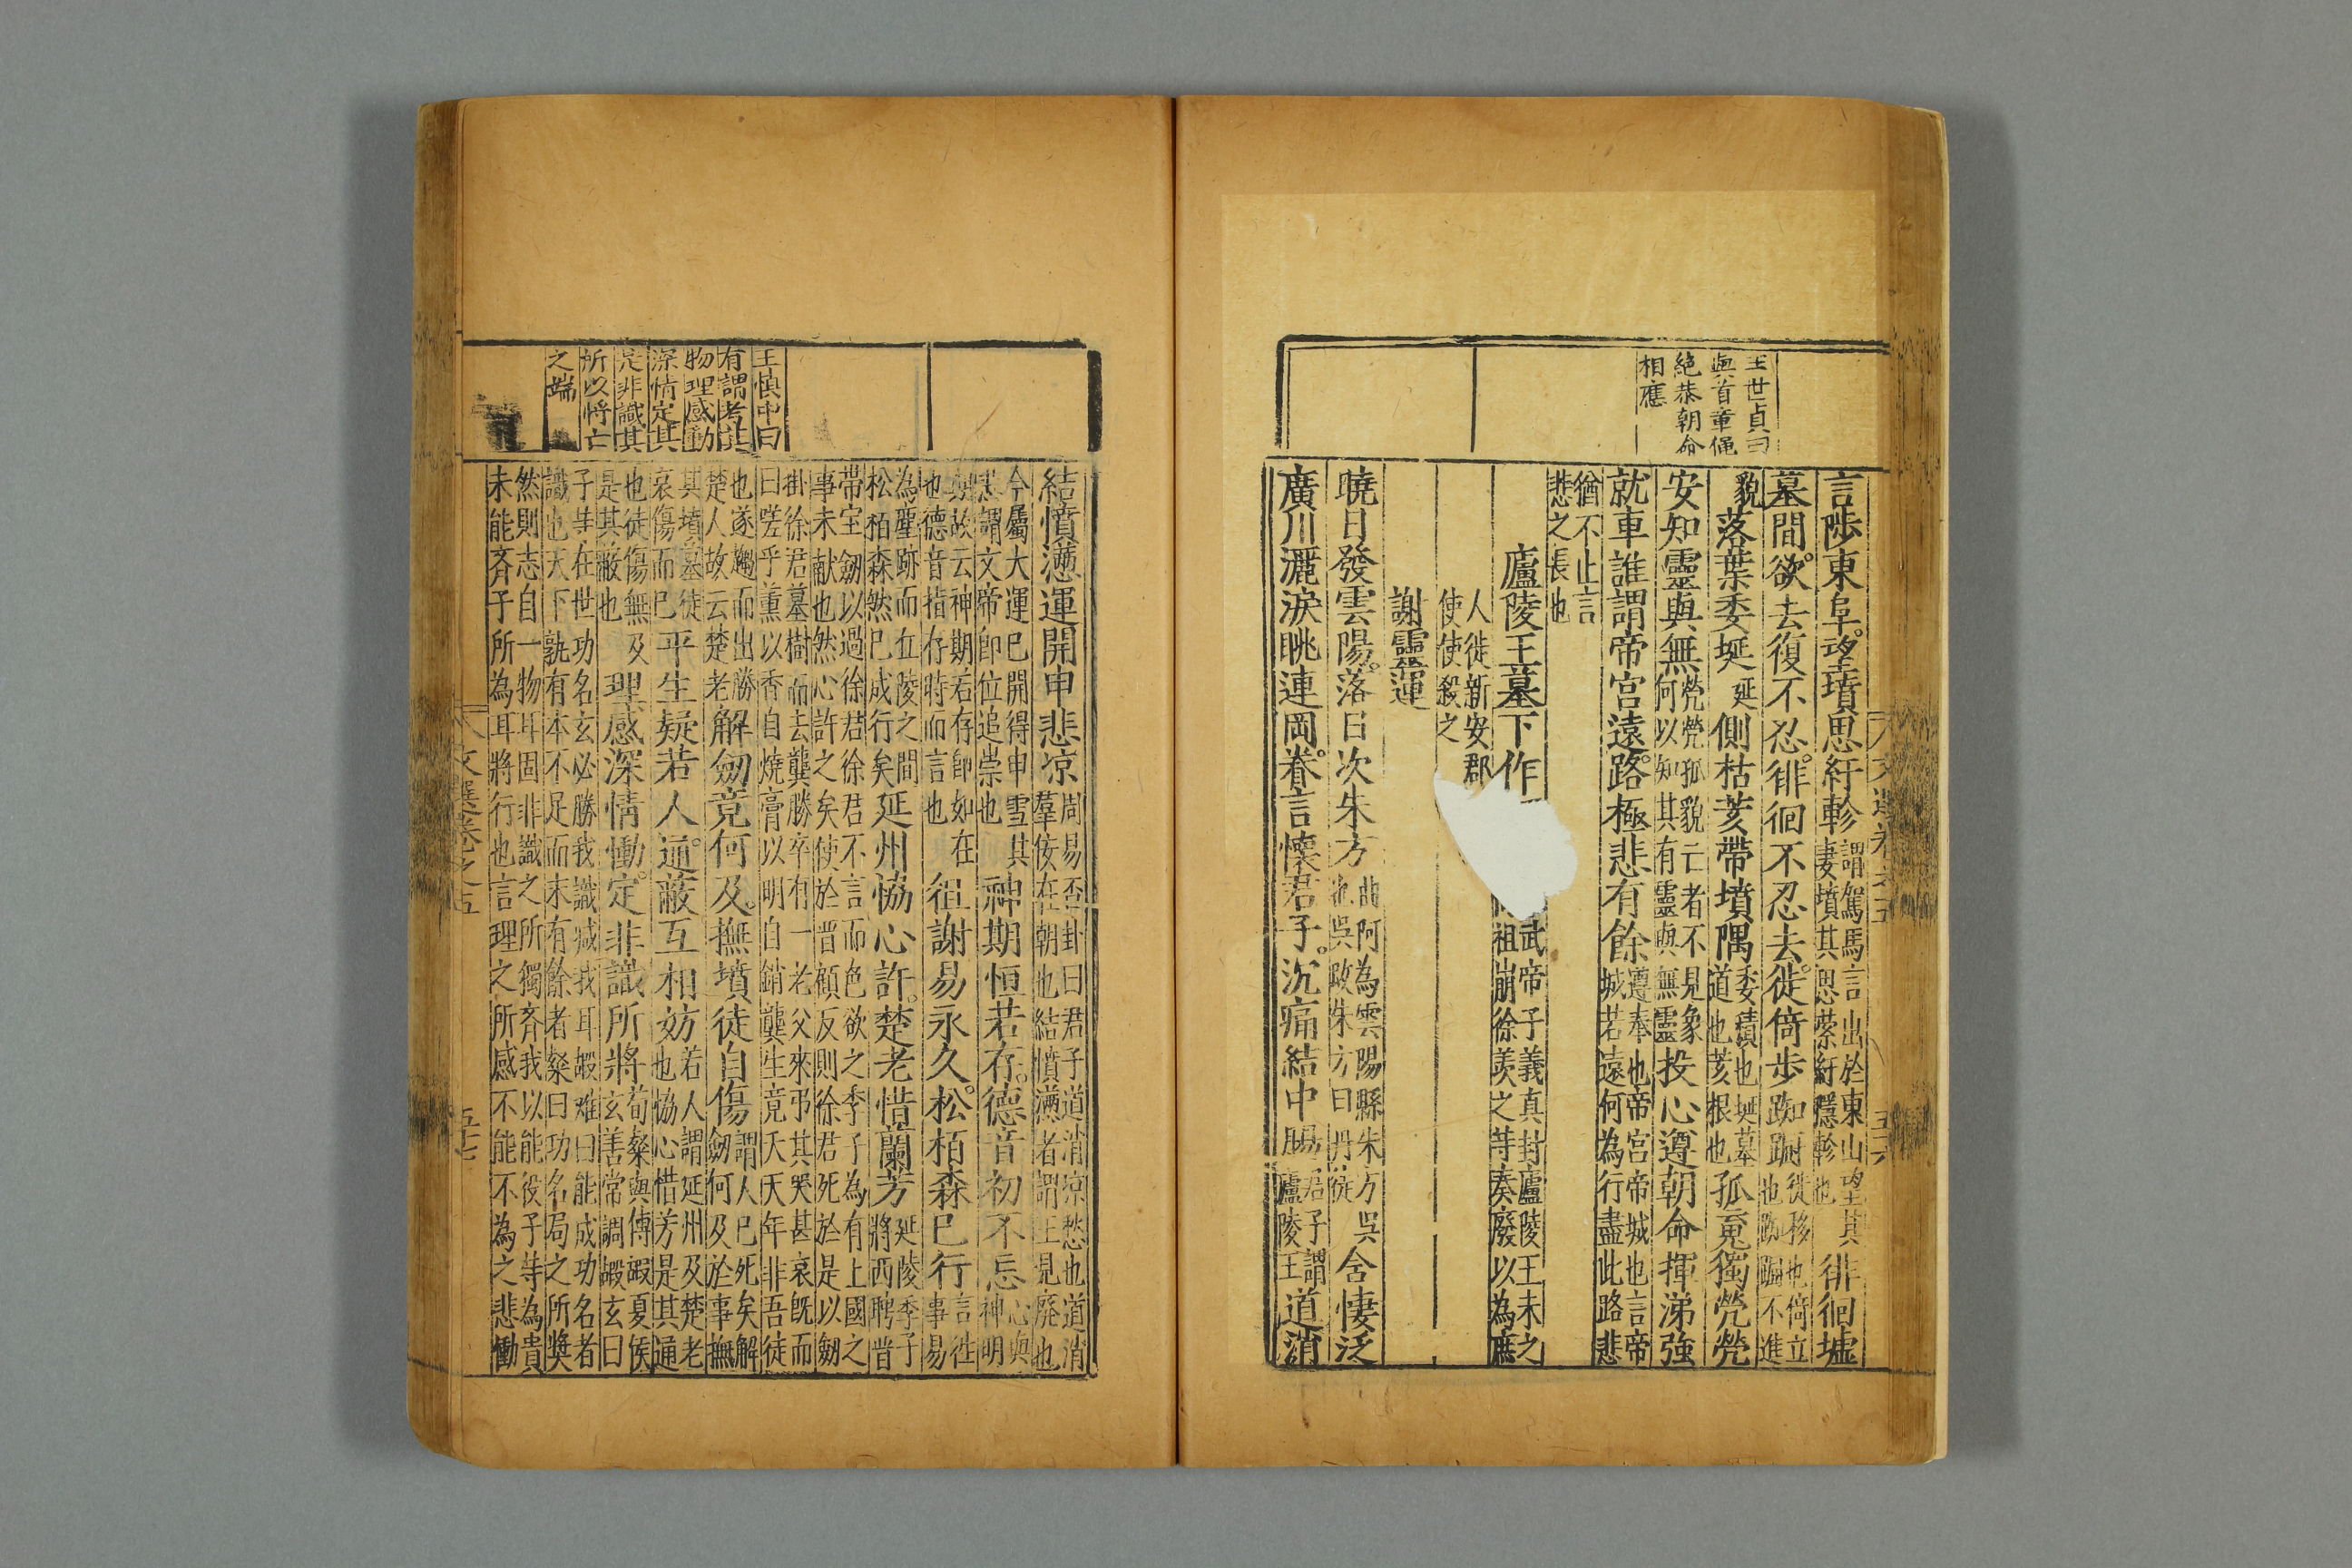 王世貞曰
與首章僶
絕恭朝命
相應
言陟東阜望墳思紆軫謂駕馬言出於東山望其
妻墳其思縈紆隱軫也徘徊墟
墓間欲去復不忍徘徊不忍去徙倚步踟躕徙移也倚立
也踟躕不進
貌落葉委埏延側枯荄帶墳隅委積也埏墓
道也荄根也孤䰟獨煢煢
安知靈與無煢煢孤貌亡者不見象
何以知其有靈與無靈投心遵朝命揮涕強
就車誰謂帝宮遠路極悲有餘遵奉也帝宮帝城也言帝
城若遠何為行盡此路悲
猶不止言
悲之長也
廬陵王墓下作
武帝子義真封廬陵王未之
祖崩徐羨之等奏廢以為庶
人徙新安郡
使使殺之
謝靈運
曉日發雲陽落日次朱方曲阿為雲陽縣朱方吳
也吳改朱方曰丹徒舍悽泛
廣川灑淚眺連岡眷言懷君子沉痛結中腸君子謂
廬陵王道消
文選卷之五
五十六
結憤懣運開申悲凉周易否卦曰君子道消凉愁也道消
羣侫在朝也結憤懣者謂王見廢也
今屬大運已開得申雪其
悲謂文帝即位追崇也神期恒若存德音初不忘心與
神明
期故云神期若存即如在
也德音猶存時而言也徂謝易永久松栢森已行言徃
事易
為塵跡而丘陵之間
松栢森然已成行矣延州恊心許楚老惜蘭芳延陵季子
將西聘晋
帶宝劒以過徐君徐君不言而色欲之季子為有上國之
事未献也然心許之矣使於晋顧反則徐君死於是以劒
掛徐君墓樹而去龔勝卒有一老父來弔其哭甚哀旣而
曰嗟乎薰以香自燒膏以明自銷龔生竟夭天年非吾徒
也遂趨而出勝
楚人故云楚老解劒竟何及撫墳徒自傷謂人已死矣解
劒何及於事撫
其墳墓徒
哀傷而已平生疑若人通蔽互相妨若人謂延州及楚老
也恊心惜芳是其通
也徒傷無及
是其蔽也理感深情慟定非識所將荀粲與傅嘏夏侯
玄善常謂嘏玄曰
子等在世功名玄必勝我識減我耳嘏难曰能成功名者
識也天下孰有本不足而末有餘者粲曰功名局之所奬
然則志自一物耳固非識之所獨齐我以能役子等為貴
未能斉子所為耳將行也言理之所感不能不為之悲慟
王慎中曰
有謂考此
物理感動
深情定其
是非識其
所以將亡
之端
文選卷之五
五十七